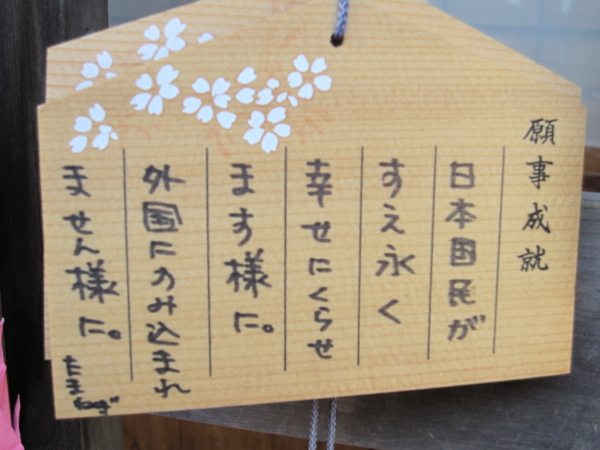 願事成就
日本国民が
すえ永く
幸せにくらせ
ます様に。
外国にのみ込まれ
ません様に。
たま